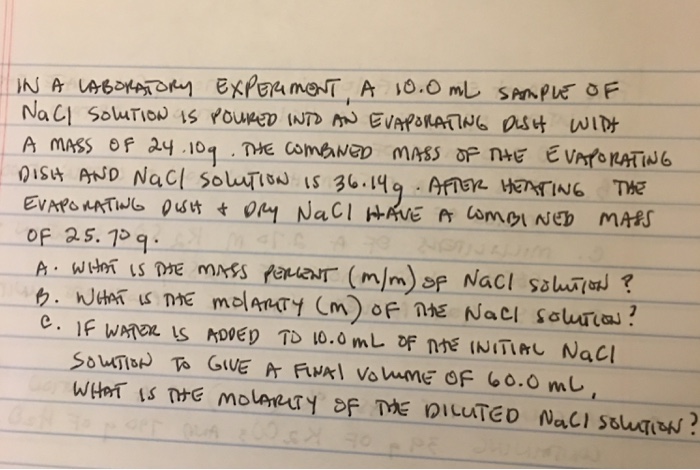 IN A LABORATORY EXPERIMENT, A 10.0 mL SAMPLE OF
NaCl SOLUTION IS POURED INTO AN EVAPORATING DISH WITH
A MASS OF 24.10g. THE COMBINED MASS OF THE EVAPORATING
DISH AND NaCl SOLUTION IS 36.14g. AFTER HEATING THE
EVAPORATING DISH + DRY NaCl HAVE A COMBINED MASS
OF 25.70g.
A. WHAT IS THE MASS PERCENT (m/m) OF NaCl SOLUTION?
B. WHAT IS THE MOLARITY (M) OF THE NaCl SOLUTION?
C. IF WATER IS ADDED TO 10.0 mL OF THE INITIAL NaCl
SOLUTION TO GIVE A FINAL VOLUME OF 60.0 mL,
WHAT IS THE MOLARITY OF THE DILUTED NaCl SOLUTION?